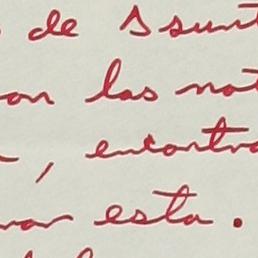 de Asunt
on las not
, encontra
nar esta.